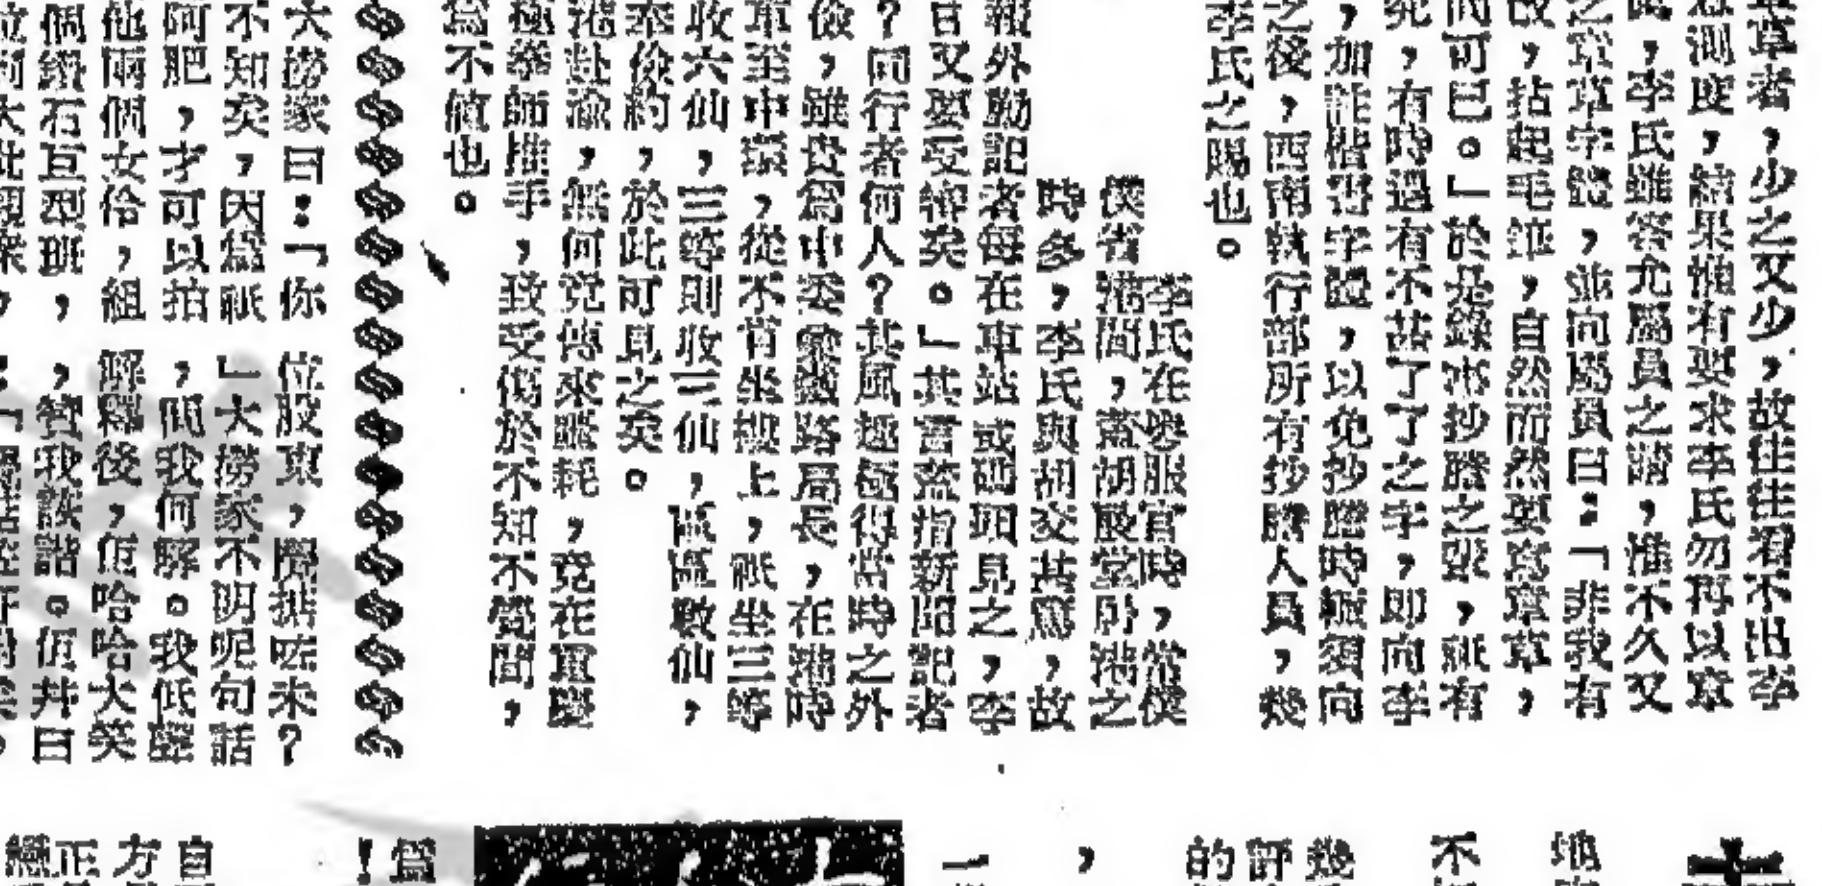 章草者，少之又少，故往往看不出李
測度，結果惟有要求李氏勿再以章
，李氏雖答允屬員之請，惟不久又
之章草字體，並向屬員曰：「非我有
改，拈起毛筆，自然而然要寫章草，
可已。」於是錄事抄謄之張，祇有
究，有時遇有不甚了了之字，即向李
，加註楷書字體，以免抄謄時頻須向
之後，西南執行部所有抄謄人員，幾
李氏之賜也。
李氏在粵服官時，常僕
僕省港間，蓋胡殿堂卧港之
時多，李氏與胡交甚篤，故
報外勤記者每在車站或碼頭見之，李
曰又要受窘矣。」其言蓋指新聞記者
？同行者何人？其風趣極得當時之外
儉，雖貴爲中委兼鐵路局長，在港時
車至中環，從不肯坐樓上，祇坐三等
收六仙，三等則收三仙，區區數仙，
奉儉約，於此可見之矣。
港赴渝，無何竟傳來噩耗，竟在重慶
極拳師推手，致受傷於不知不覺間，
爲不値也。
大撈家曰：「你
位股東，開親咗未？
不知矣，因爲祇
」大撈家不明呢句話
阿肥，才可以拍
，問我何解。我低聲
他兩個女伶，組
解釋後，佢哈哈大笑
個鑽石巨型班，
，贊我詼諧。佢幷曰
幾
評
的
，
一
不
地
爲
！
自
方
正